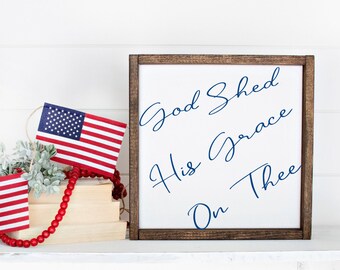 God Shed
His Grace
On Thee